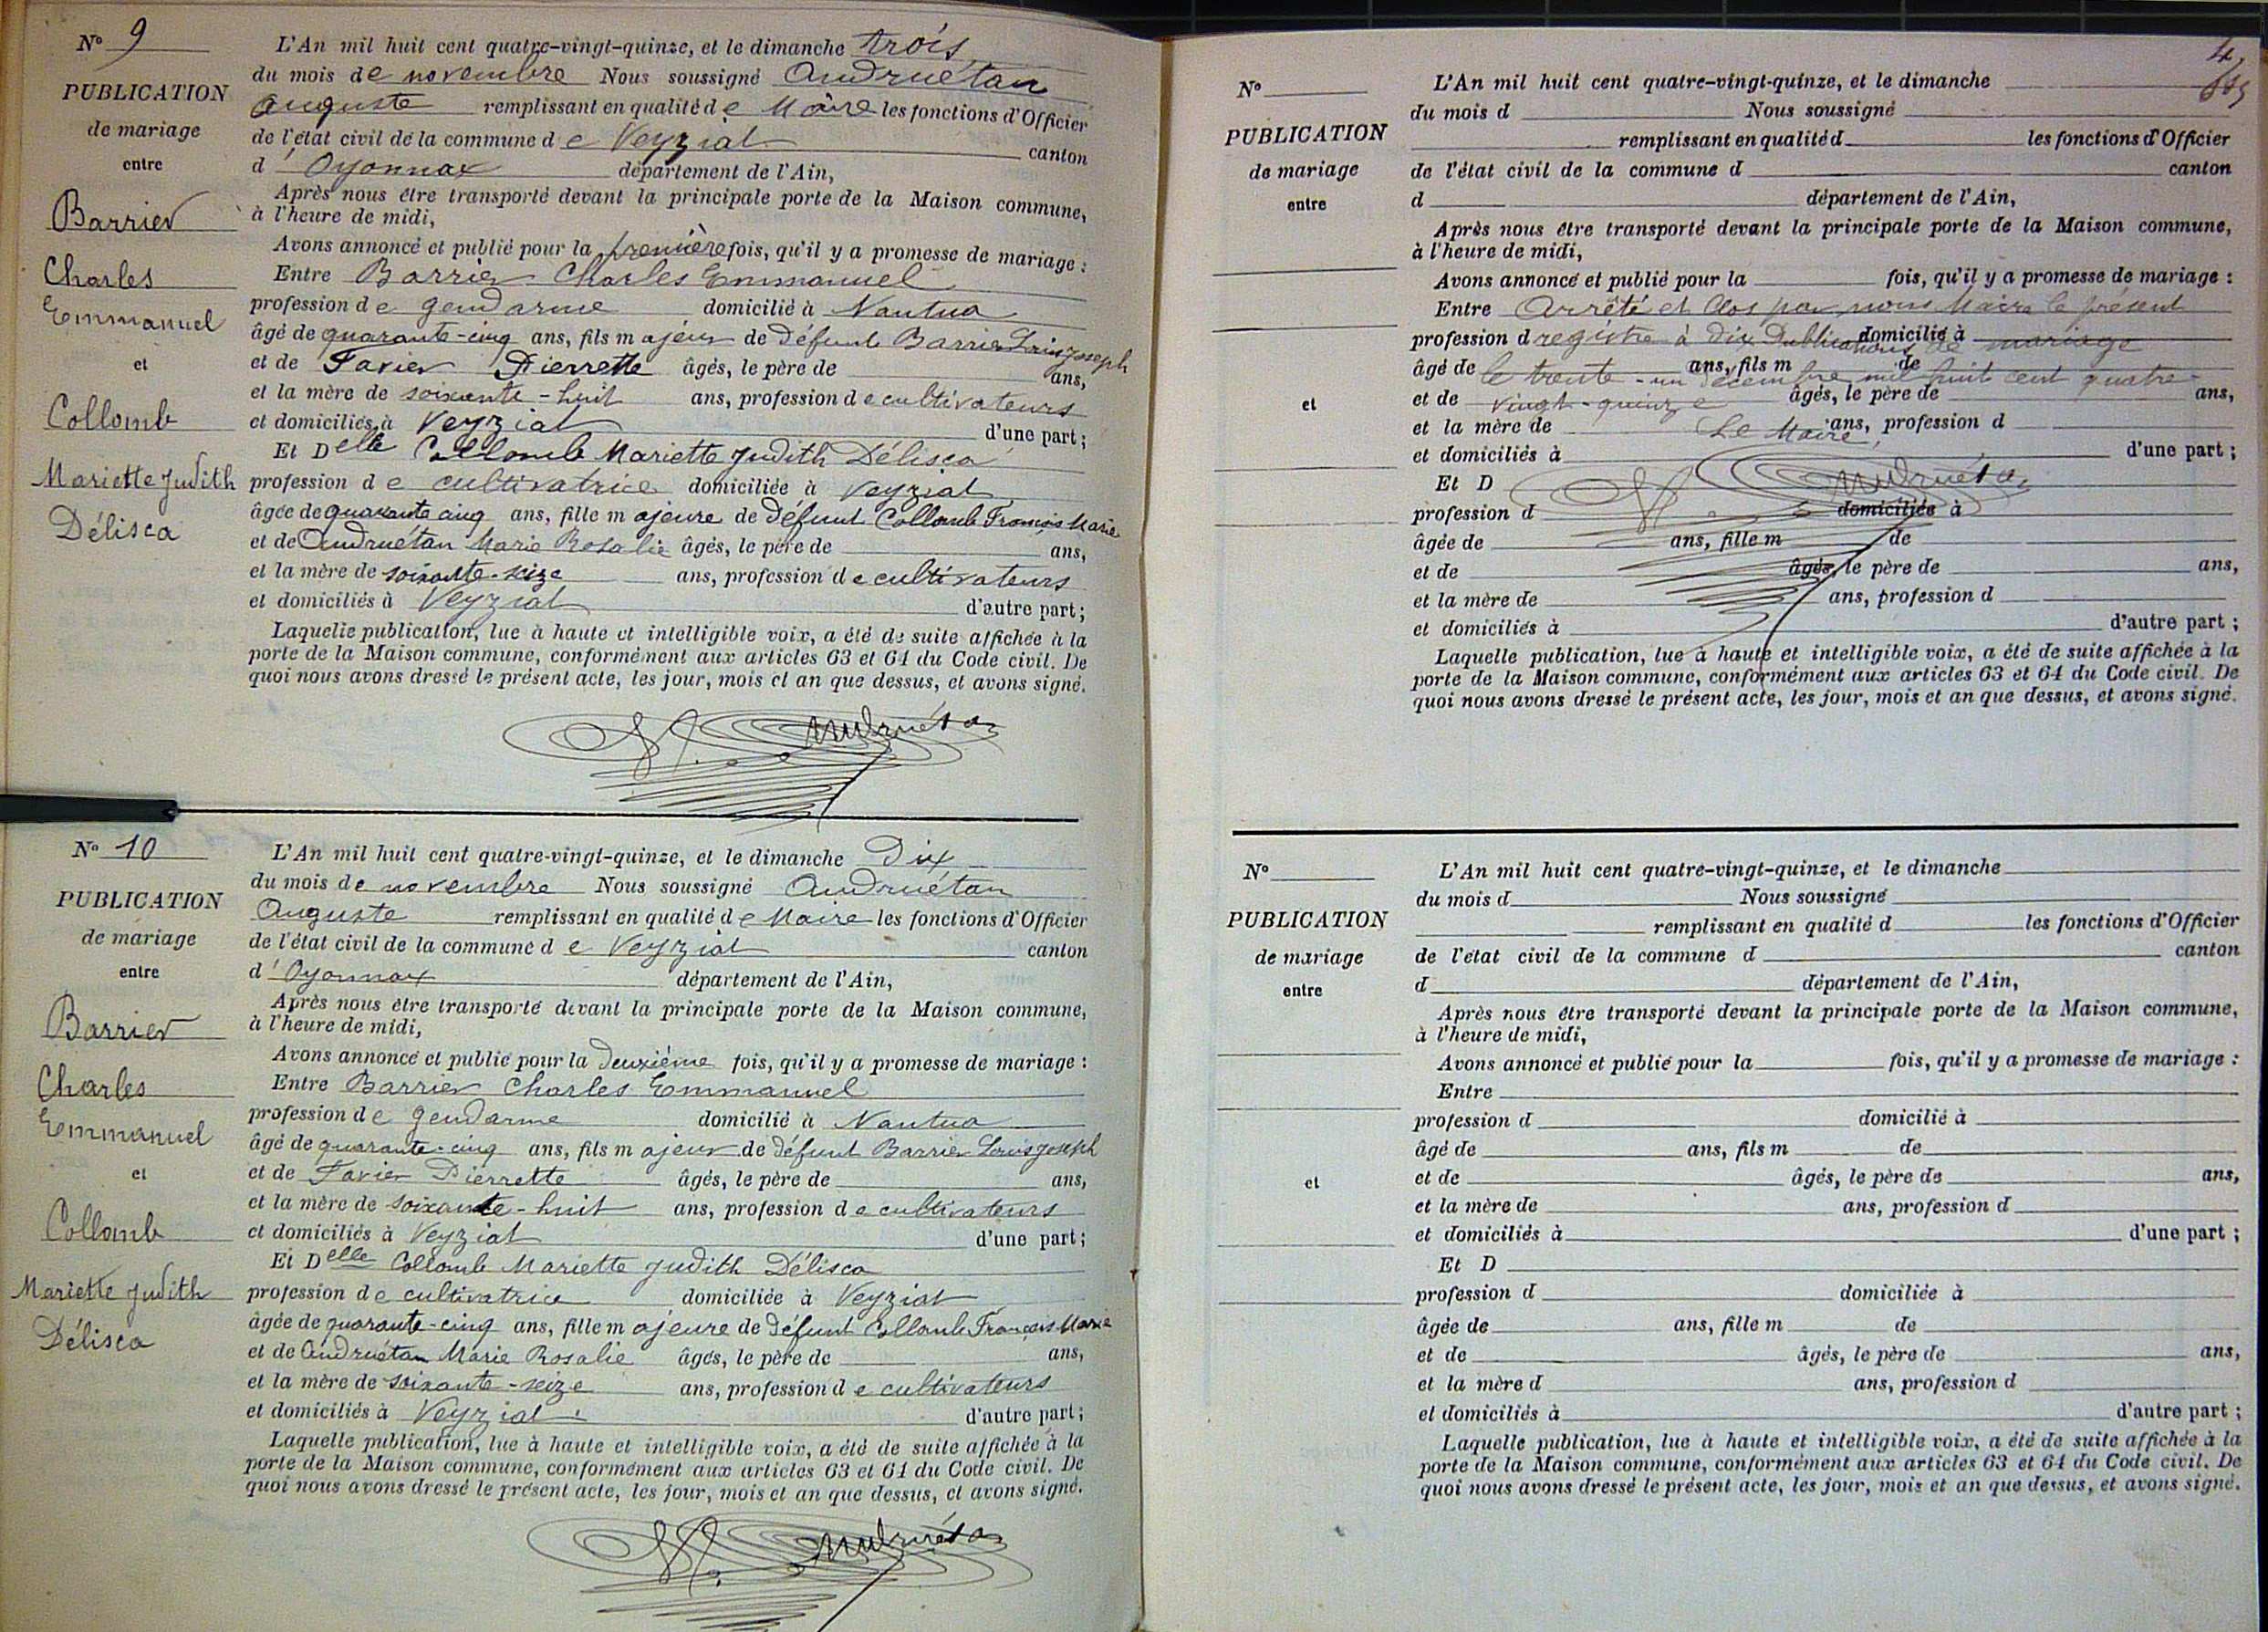 N° 9
PUBLICATION
de mariage
entre
Barrier
Charles
Emmanuel
et
Collomb
Mariette Judith
Délisca
L'An mil huit cent quatre-vingt-quinze, et le dimanche trois
du mois de novembre Nous soussigné Andruétan
Auguste remplissant en qualité de Maire les fonctions d'Officier
de l'état civil de la commune de Veyziat canton
d'Oyonnax département de l'Ain,
Après nous être transporté devant la principale porte de la Maison commune,
à l'heure de midi,
Avons annoncé et publié pour la première fois, qu'il y a promesse de mariage :
Entre Barrier Charles Emmanuel
profession de gendarme domicilié à Nantua
âgé de quarante-cinq ans, fils majeur de défunt Barrier Louis Joseph
et de Favier Pierrette âgés, le père de ans,
et la mère de soixante-huit ans, profession de cultivateurs
et domiciliés à Veyziat d'une part ;
Et Delle Collomb Mariette Judith Délisca
profession de cultivatrice domiciliée à Veyziat
âgée de quarante cinq ans, fille majeure de défunt Collomb François Marie
et de Andruétan Marie Rosalie âgés, le père de ans,
et la mère de soixante-seize ans, profession de cultivateurs
et domiciliés à Veyziat d'autre part ;
Laquelle publication, lue à haute et intelligible voix, a été de suite affichée à la
porte de la Maison commune, conformément aux articles 63 et 64 du Code civil. De
quoi nous avons dressé le présent acte, les jour, mois et an que dessus, et avons signé.
Andruétan
N° 10
PUBLICATION
de mariage
entre
Barrier
Charles
Emmanuel
et
Collomb
Mariette Judith
Délisca
L'An mil huit cent quatre-vingt-quinze, et le dimanche Dix
du mois de novembre Nous soussigné Andruétan
Auguste remplissant en qualité de Maire les fonctions d'Officier
de l'état civil de la commune de Veyziat canton
d'Oyonnax département de l'Ain,
Après nous être transporté devant la principale porte de la Maison commune,
à l'heure de midi,
Avons annoncé et publié pour la deuxième fois, qu'il y a promesse de mariage :
Entre Barrier Charles Emmanuel
profession de gendarme domicilié à Nantua
âgé de quarante-cinq ans, fils majeur de défunt Barrier Louis Joseph
et de Favier Pierrette âgés, le père de ans,
et la mère de soixante-huit ans, profession de cultivateurs
et domiciliés à Veyziat d'une part ;
Et Delle Collomb Mariette Judith Délisca
profession de cultivatrice domiciliée à Veyziat
âgée de quarante-cinq ans, fille majeure de défunt Collomb François Marie
et de Andruétan Marie Rosalie âgés, le père de ans,
et la mère de soixante-seize ans, profession de cultivateurs
et domiciliés à Veyziat d'autre part ;
Laquelle publication, lue à haute et intelligible voix, a été de suite affichée à la
porte de la Maison commune, conformément aux articles 63 et 64 du Code civil. De
quoi nous avons dressé le présent acte, les jour, mois et an que dessus, et avons signé.
Andruétan
4
N°
PUBLICATION
de mariage
entre
et
L'An mil huit cent quatre-vingt-quinze, et le dimanche
du mois d Nous soussigné
remplissant en qualité d les fonctions d'Officier
de l'état civil de la commune d canton
d département de l'Ain,
Après nous être transporté devant la principale porte de la Maison commune,
à l'heure de midi,
Avons annoncé et publié pour la fois, qu'il y a promesse de mariage :
Entre Arrêté et Clos par nous Maire le présent
profession d registre à dix Publications de mariage domicilié à
âgé de le trente-un décembre mil huit cent quatre- ans, fils m de
et de vingt-quinze âgés, le père de ans,
et la mère de Le Maire, ans, profession d
et domiciliés à d'une part ;
Et D Andruétan
profession d domiciliée à
âgée de ans, fille m de
et de âgés, le père de ans,
et la mère de ans, profession d
et domiciliés à d'autre part ;
Laquelle publication, lue à haute et intelligible voix, a été de suite affichée à la
porte de la Maison commune, conformément aux articles 63 et 64 du Code civil. De
quoi nous avons dressé le présent acte, les jour, mois et an que dessus, et avons signé.
N°
PUBLICATION
de mariage
entre
et
L'An mil huit cent quatre-vingt-quinze, et le dimanche
du mois d Nous soussigné
remplissant en qualité d les fonctions d'Officier
de l'état civil de la commune d canton
d département de l'Ain,
Après nous être transporté devant la principale porte de la Maison commune,
à l'heure de midi,
Avons annoncé et publié pour la fois, qu'il y a promesse de mariage :
Entre
profession d domicilié à
âgé de ans, fils m de
et de âgés, le père de ans,
et la mère de ans, profession d
et domiciliés à d'une part ;
Et D
profession d domiciliée à
âgée de ans, fille m de
et de âgés, le père de ans,
et la mère d ans, profession d
et domiciliés à d'autre part ;
Laquelle publication, lue à haute et intelligible voix, a été de suite affichée à la
porte de la Maison commune, conformément aux articles 63 et 64 du Code civil. De
quoi nous avons dressé le présent acte, les jour, mois et an que dessus, et avons signé.